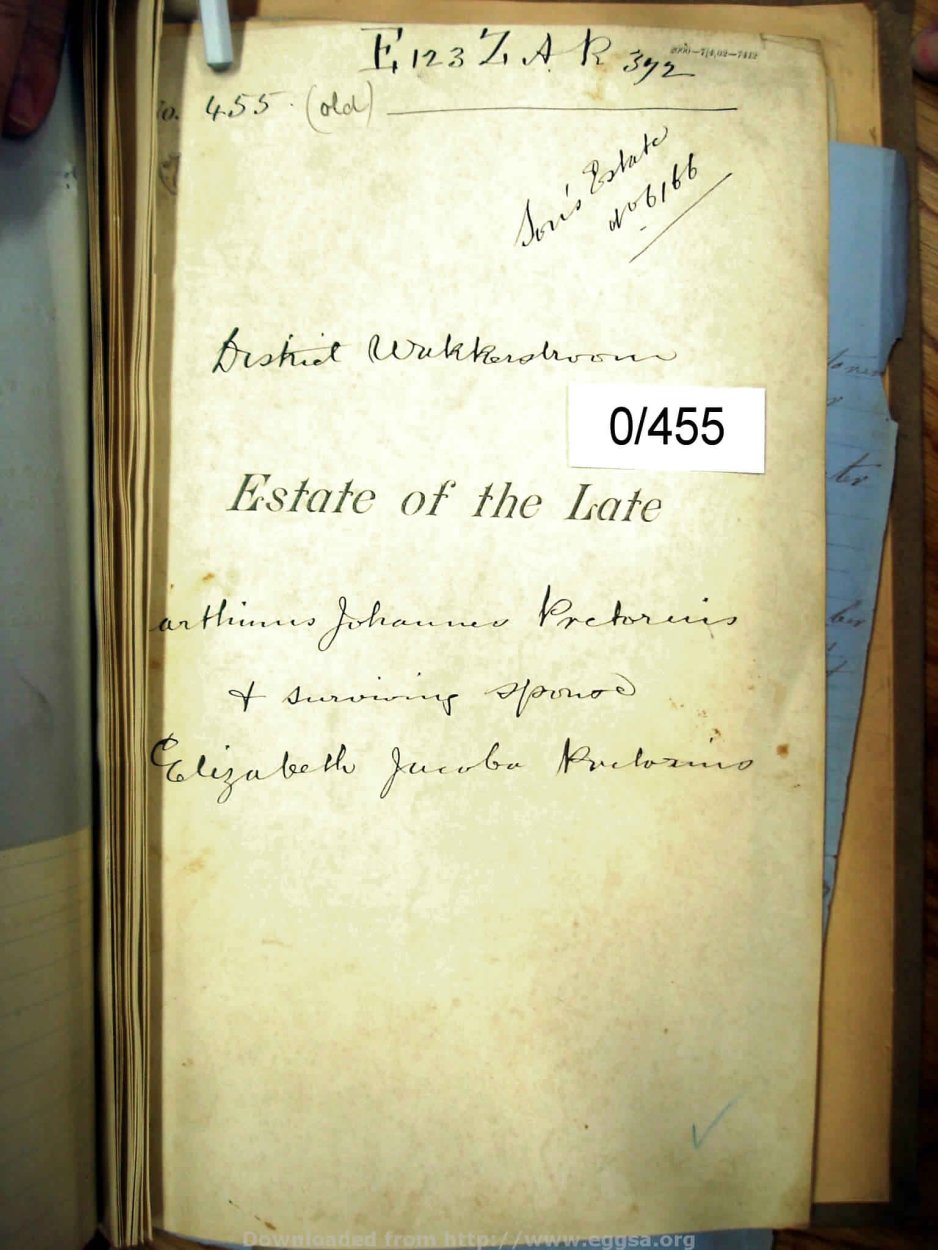 E 123 Z A R 392
2000—7/4/02—7412
o. 455 (old)
Son's Estate
No 6166
District Wakkerstroom
0/455
Estate of the Late
arthinus Johannes Pretorius
& surviving spouse
Elizabeth Jacoba Pretorius
ter
ber
Downloaded from http://www.eggsa.org